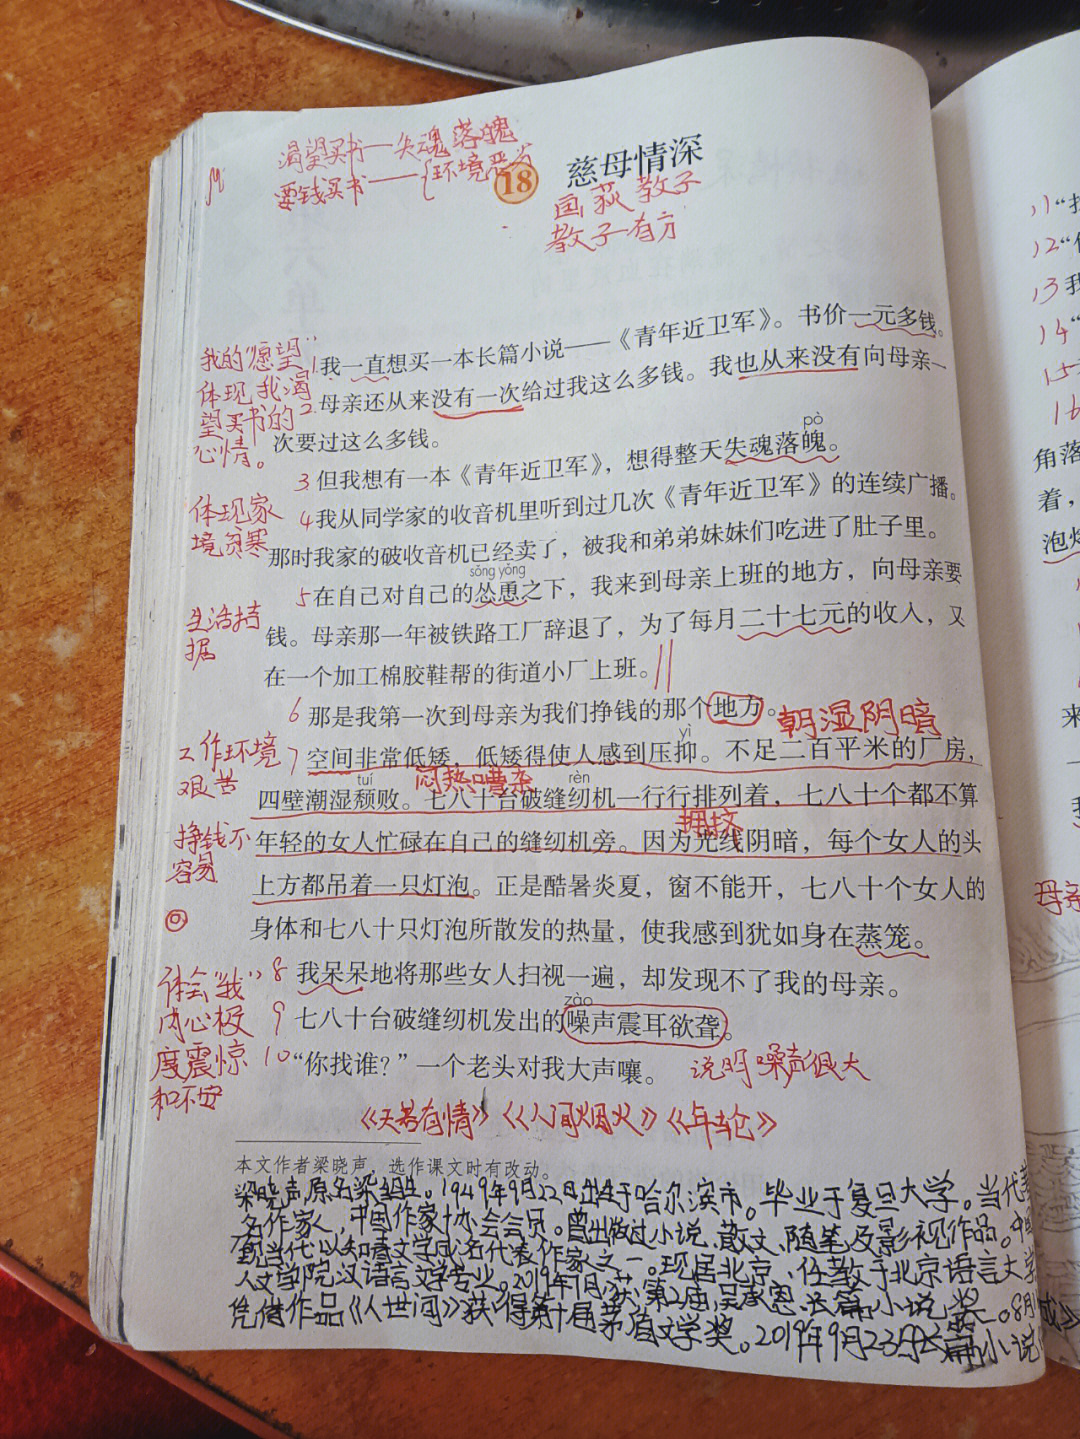 渴望买书—失魂落魄
要钱买书——{环境恶劣
18
慈母情深
画荻教子
教子有方
我的"愿望"
体现我渴
望买书的
心情。
1.我一直想买一本长篇小说——《青年近卫军》。书价一元多钱。
2.母亲还从来没有一次给过我这么多钱。我也从来没有向母亲一
次要过这么多钱。
pò
3 但我想有一本《青年近卫军》，想得整天失魂落魄。
体现家
境贫寒
4 我从同学家的收音机里听到过几次《青年近卫军》的连续广播。
那时我家的破收音机已经卖了，被我和弟弟妹妹们吃进了肚子里。
sǒng yǒng
5 在自己对自己的怂恿之下，我来到母亲上班的地方，向母亲要
生活拮
据
钱。母亲那一年被铁路工厂辞退了，为了每月二十七元的收入，又
在一个加工棉胶鞋帮的街道小厂上班。
6 那是我第一次到母亲为我们挣钱的那个地方。
朝湿阴暗
工作环境
艰苦
yì
7 空间非常低矮，低矮得使人感到压抑。不足二百平米的厂房，
闷热嘈杂
tuí
rèn
四壁潮湿颓败。七八十台破缝纫机一行行排列着，七八十个都不算
拥挤
挣钱不
容易
年轻的女人忙碌在自己的缝纫机旁。因为光线阴暗，每个女人的头
上方都吊着一只灯泡。正是酷暑炎夏，窗不能开，七八十个女人的
身体和七八十只灯泡所散发的热量，使我感到犹如身在蒸笼。
体会"我"
内心极
度震惊
和不安
8 我呆呆地将那些女人扫视一遍，却发现不了我的母亲。
zào
9 七八十台破缝纫机发出的噪声震耳欲聋。
10 "你找谁？"一个老头对我大声嚷。
说明噪声很大
《天若有情》《人间烟火》《年轮》
本文作者梁晓声，选作课文时有改动。
梁晓声,原名梁绍生。1949年9月22日出生于哈尔滨市。毕业于复旦大学。当代著
名作家,中国作家协会会员。曾出版过小说、散文、随笔及影视作品。中国
现当代以知青文学成名代表作家之一。现居北京,任教于北京语言大学
人文学院汉语言文学专业。2019年7月,获第2届吴承恩长篇小说奖。8月
凭借作品《人世间》获得第十届茅盾文学奖。2019年9月23日长篇小说
11"
12"
13 我
14"
15
16
角落
着，
来
母亲